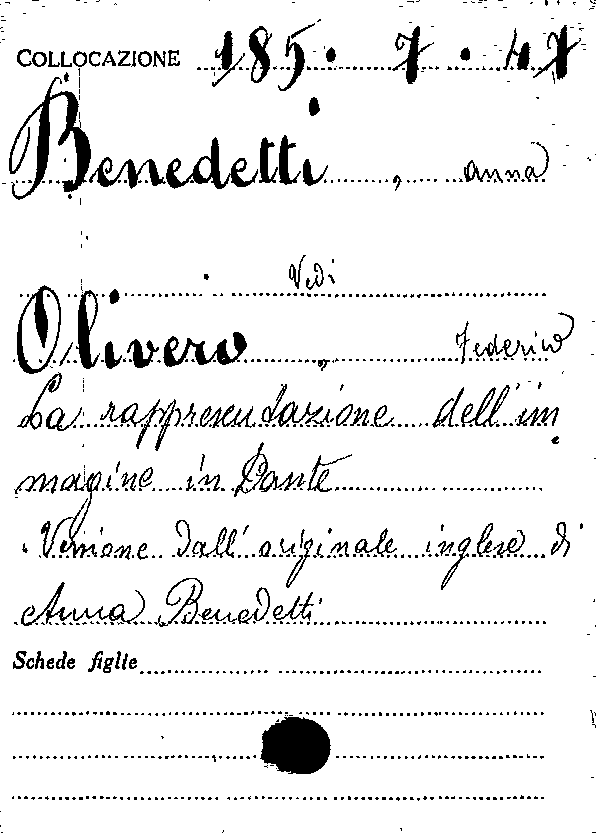 COLLOCAZIONE 185. 7. 47
Benedetti, Anna
Vedi
Olivero, Federico
La rappresentazione dell'im
magine in Dante
Versione dall'originale inglese di
Anna Benedetti
Schede figlie